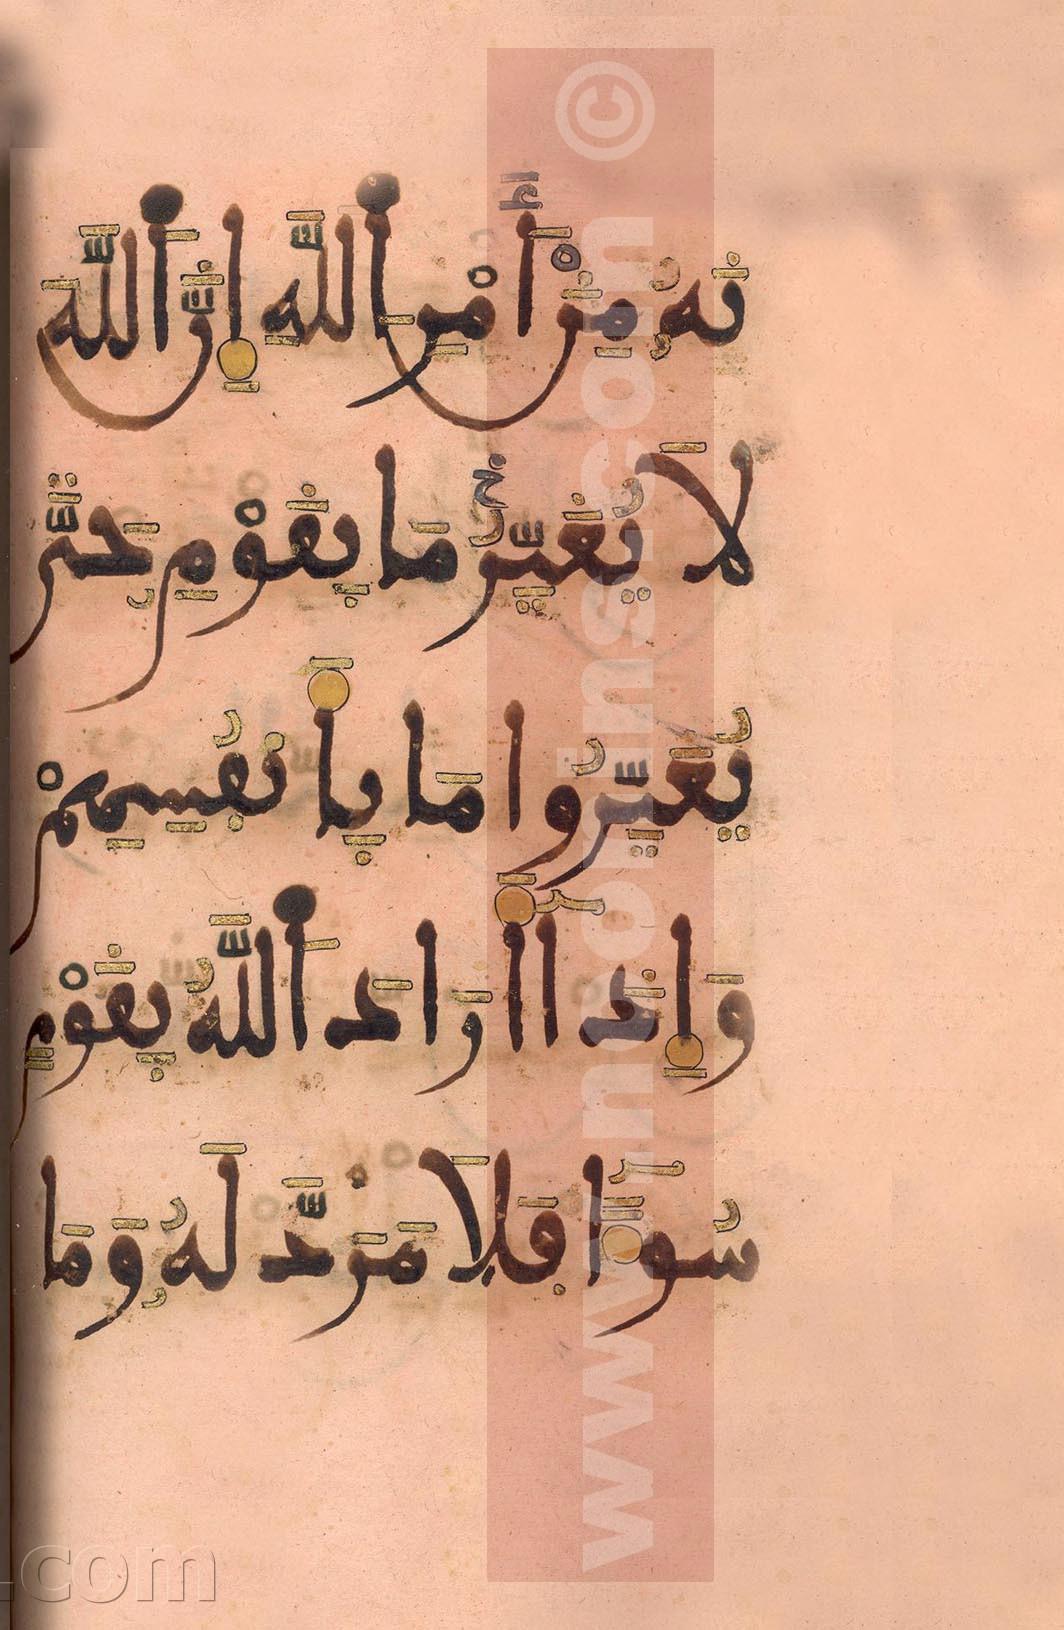 نَهُۥ مِنْ أَمْرِ اِ۬للَّهِ إِنَّ اَ۬للَّهَ
لَا يُغَيِّرُ مَا بِقَوْمٍ حَتَّىٰ
يُغَيِّرُوا مَا بِأَنفُسِهِمْ
وَإِذَآ أَرَادَ اَ۬للَّهُ بِقَوْمٍ
سُوٓءًا فَلَا مَرَدَّ لَهُۥ وَمَا
www.inco
ns.com ©
.com